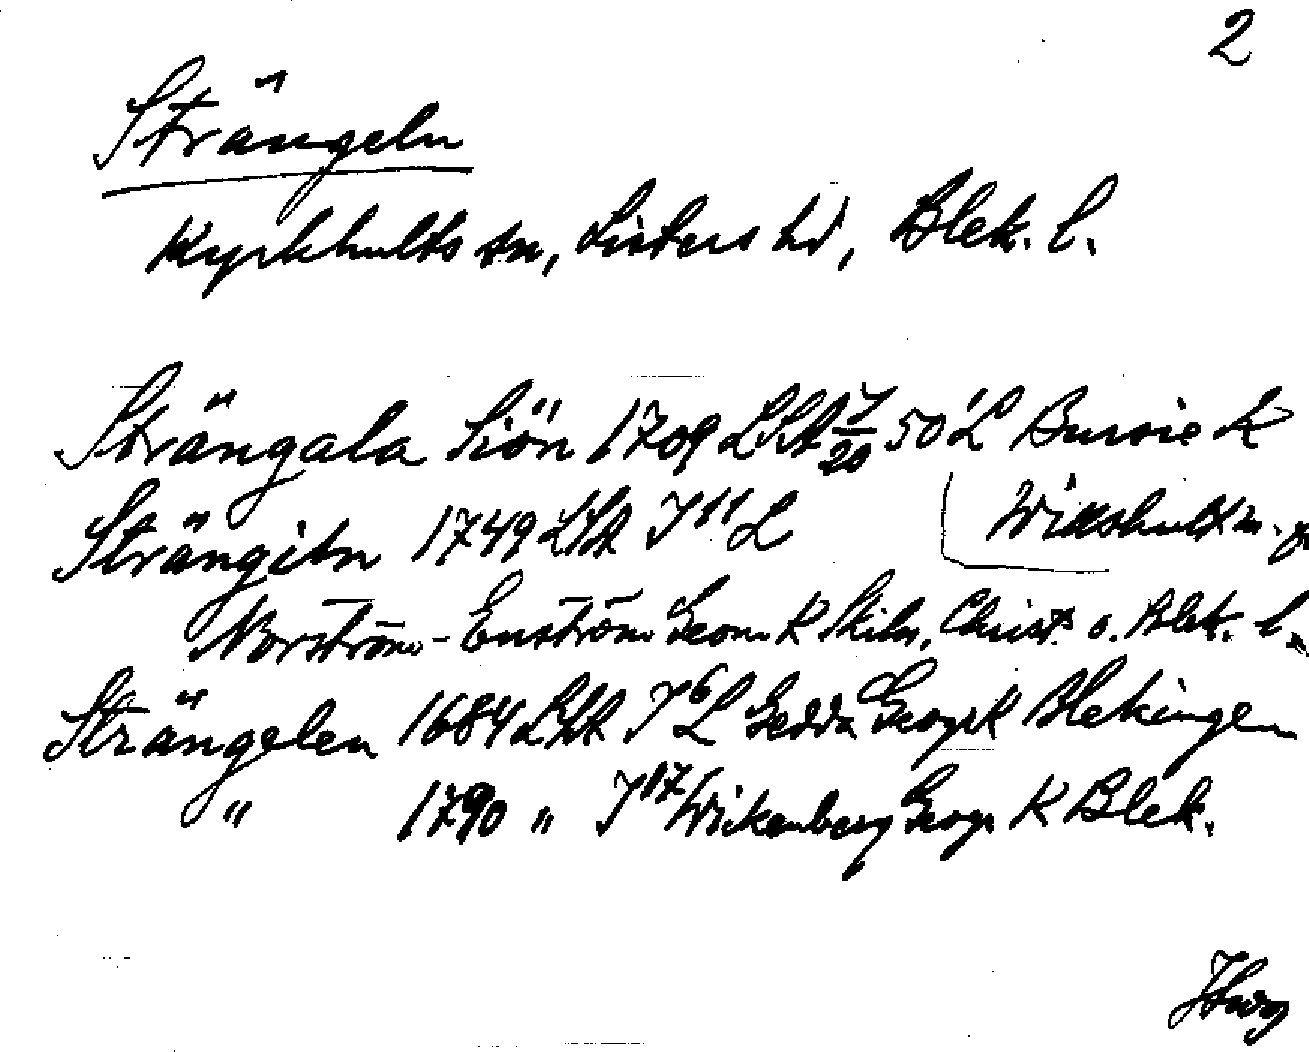 2
Strängeln
Kyrkhults sn, Listers hd, Blek. l.
Strängala Siön 1709 LSA J/20 50'L Burvie K
Strängeln 1749 LSA J11 L Wilshult
Norström-Enström Geom K Skåln, Christ. o. Blek. l.
Strängelen 1684 LSA J6 L Gedda Geogr K Blekingen
" 1790 " J17 Wickenberg Geogr K Blek.